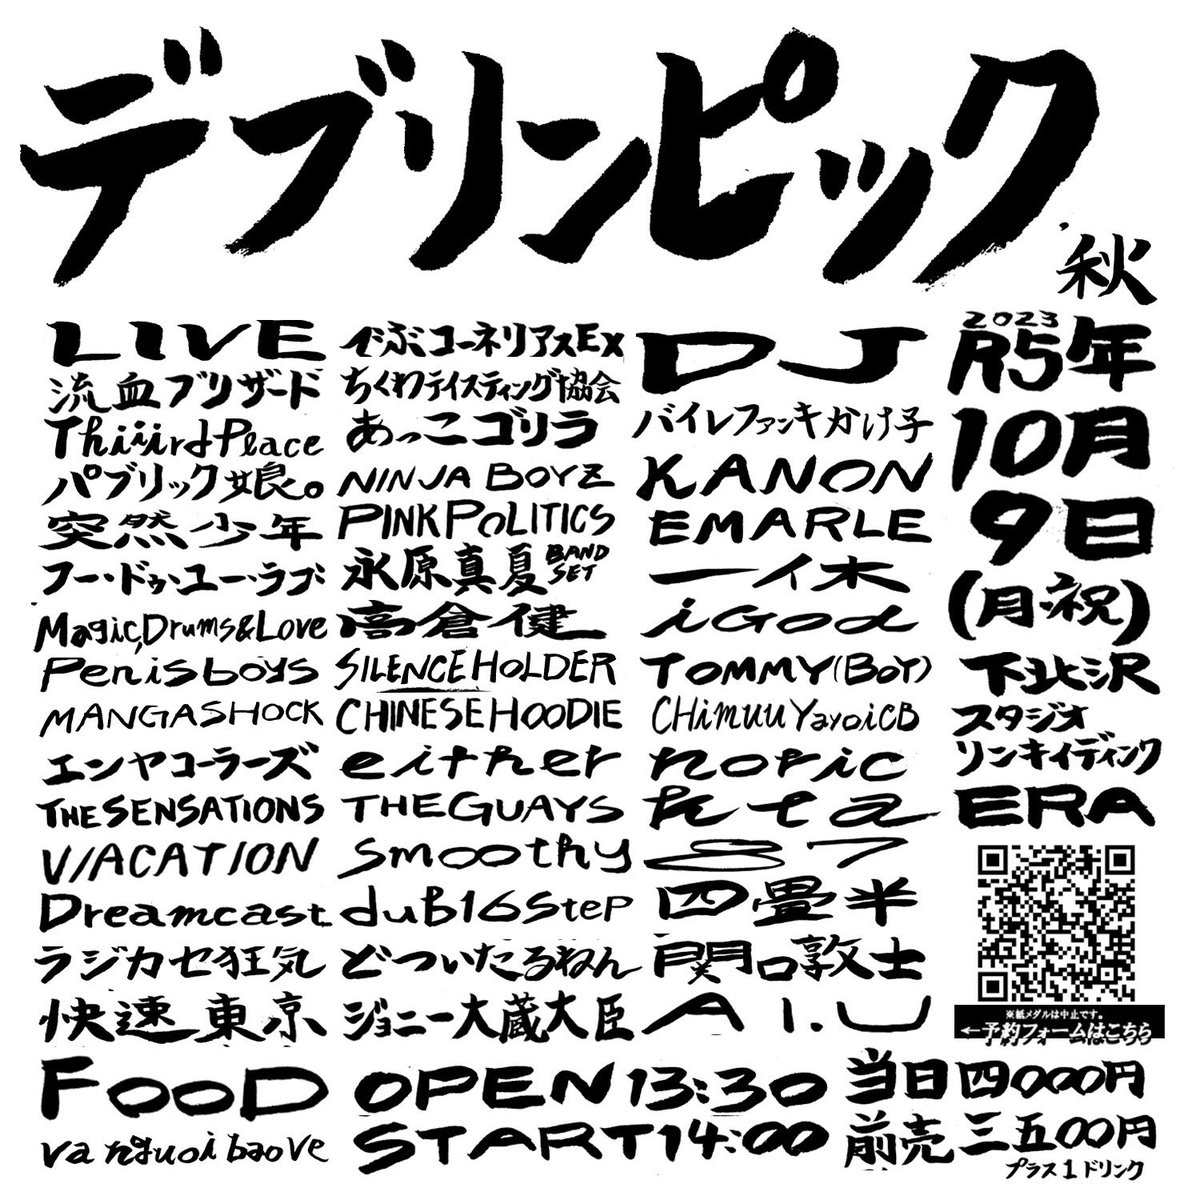 デブリンピック
秋
LIVE
流血ブリザード
Thiiird Place
パブリック娘。
突然少年
フー・ドゥ・ユー・ラブ
Magic, Drums & Love
Penis boys
MANGASHOCK
エンヤコーラーズ
THE SENSATIONS
V/ACATION
Dreamcast
ラジカセ狂気
快速東京
でぶコーネリアスEx
ちくわテイスティング協会
あっこゴリラ
NINJA BOYZ
PINK POLITICS
永原真夏 BAND SET
高倉健
SILENCE HOLDER
CHINESE HOODIE
either
THE GUAYS
Smoothy
duB16Step
どついたるねん
ジョニー大蔵大臣
DJ
バイレファンキかけ子
KANON
EMARLE
一イ木
iGod
TOMMY(BOY)
CHimuuYayoiCB
noric
kta
87
四畳半
関口敦士
AI.U
2023
R5年
10月
9日
(月・祝)
下北沢
スタジオ
リンキィディンク
ERA
※紙メダルは中止です。
←予約フォームはこちら
FOOD
va nguoi bao ve
OPEN 13:30
START 14:00
当日四000円
前売三五00円
プラス1ドリンク